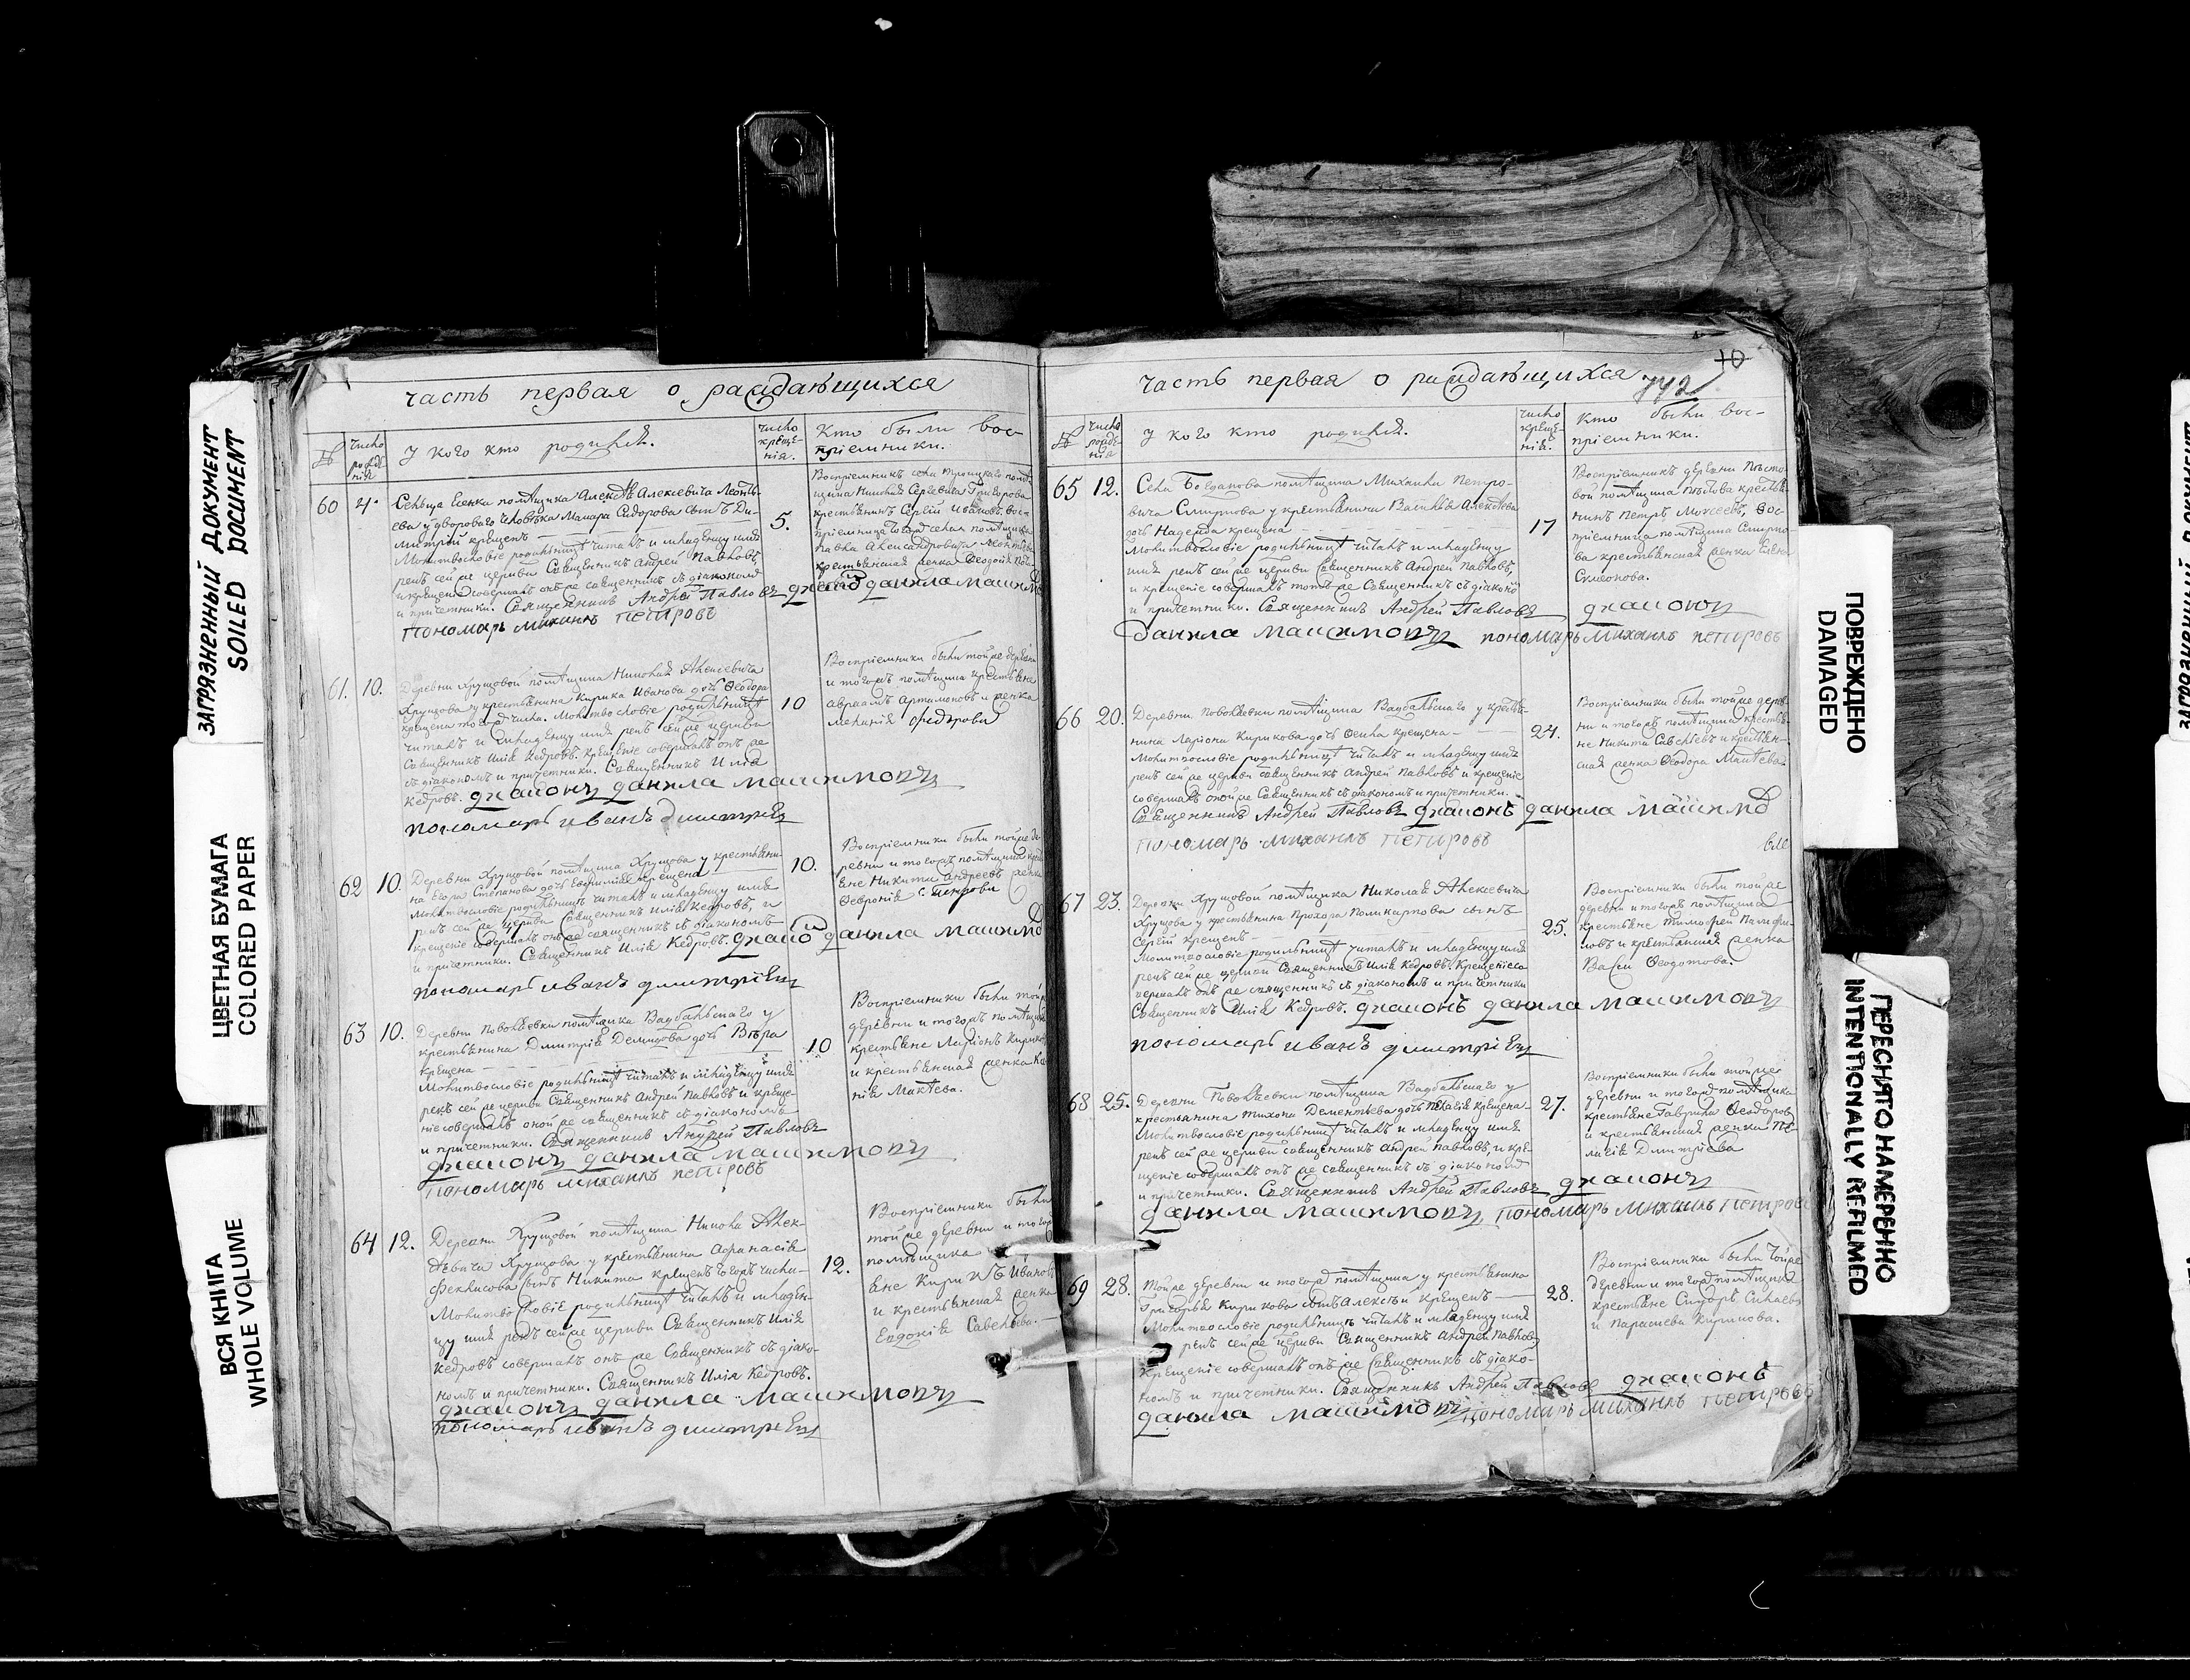 ЗАГРЯЗНЕННЫЙ ДОКУМЕНТ
SOILED DOCUMENT
ЦВЕТНАЯ БУМАГА
COLORED PAPER
ВСЯ КНИГА
WHOLE VOLUME
часть первая о раждающихся
№
число рожде-нія
У кого кто родился.
число креще-нія.
Кто были вос-
пріемники.
60 4.
Сельца Еленки помѣщика Алексѣя Алексѣевича Леонть-
ева у двороваго человѣка Макара Сидорова сынъ Ди-
митрей крещенъ
Молитвословіе родильницѣ читалъ и младенцу имя
рекъ сей же церкви Священникъ Андрей Павловъ,
и крещеніе совершалъ онъ же священникъ съ діакономъ
и причетники. Священникъ Андрей Павловъ диаконъ данила максимовъ
Пономарь Михаилъ Петровъ
5.
Воспріемникъ села Троицкаго помѣ-
щика Николая Сергѣевича Григорова
крестьянинъ Сергѣй Ивановъ, вос-
пріемница тогожъ сельца помѣщика
Павла Александровича
крестьянская женка Ѳеодосія
61. 10.
Деревни Хрущовой помѣщика Николая Алексѣевича
Хрущова у крестьянина Кирика Иванова дочь Ѳеодора
крещена тогожъ числа. Молитвословіе родильницѣ
читалъ и младенцу имя рекъ сей же церкви
Священникъ Илія Кедровъ. крещеніе совершалъ онъ же
съ діакономъ и причетники. Священникъ Илія
Кедровъ. диаконъ данила максимовъ
пономарь иванъ димитриевъ
10
Воспріемники были тойже деревни
и тогожъ помѣщика крестьянинъ
Авраамъ Артамоновъ и женка
Меланія Ѳедорова
62 10.
Деревни Хрущовой помѣщика Хрущова у крестьяни-
на Егора Степанова дочь Евфимія крещена
Молитвословіе родильницѣ читалъ и младенцу имя
рекъ сей же церкви Священникъ Илія Кедровъ, и
крещеніе совершалъ онъ же священникъ съ діакономъ
и причетники. Священникъ Илія Кедровъ. диаконъ данила максимовъ
пономарь иванъ димитриевъ
10.
Воспріемники были тойже де-
ревни и тогожъ помѣщика кресть-
яне Никита Андреевъ женка
Февронія
63 10.
Деревни Поволяевки помѣщика Вадбальскаго у
крестьянина Димитрія Демидова дочь Вѣра
крещена
Молитвословіе родильницѣ читалъ и младенцу имя
рекъ сей же церкви Священникъ Андрей Павловъ и креще-
ніе совершалъ оной же священникъ съ діакономъ
и причетники. Священникъ Андрей Павловъ
диаконъ данила максимовъ
Пономарь Михаилъ Петровъ
10
Воспріемники были тойже
деревни и тогожъ помѣщика
крестьяне Ларіонъ Кириковъ
и крестьянская женка
Мактева.
64 12.
Деревни Хрущовой помѣщика Николая Алек-
сѣевича Хрущова у крестьянина Афанасія
Феклисова сынъ Никита крещенъ тогожъ числа-
Молитвословіе родильницѣ читалъ и младен-
цу имя рекъ сей же церкви Священникъ Илія
Кедровъ совершалъ онъ же Священникъ съ діако-
номъ и причетники. Священникъ Илія Кедровъ.
диаконъ данила максимовъ
пономарь иванъ димитриевъ
12.
Воспріемники были
тойже деревни и тогожъ
помѣщика
яне Кирикъ Ивановъ
и крестьянская женка
Евдокія Савельева.
10
742
часть первая о раждающихся
№
число рожде-нія
У кого кто родился.
число креще-нія.
Кто были вос-
пріемники.
65 12.
Села Богданова помѣщика Михаила Петро-
вича Смирнова у крестьянина Василья Алексѣева
дочь Надежда крещена
Молитвословіе родильницѣ читалъ и младенцу
имя рекъ сей же церкви Священникъ Андрей Павловъ,
и крещеніе совершалъ тотъ же Священникъ съ діакономъ
и причетники. Священникъ Андрей Павловъ диаконъ
данила максимовъ пономарь Михаилъ Петровъ
17
Воспріемникъ деревни Пѣсто-
вой помѣщика крестья-
нинъ Петръ Моисеевъ, вос-
пріемница помѣщика Смирно-
ва крестьянская женка Елена
Симеонова.
66 20.
Деревни Поволяевки помѣщика Вадбальскаго у крестья-
нина Ларіона Кирикова дочь Ѳекла крещена-
Молитвословіе родильницѣ читалъ и младенцу имя
рекъ сей же церкви священникъ Андрей Павловъ и крещеніе
совершалъ оной же Священникъ съ діакономъ и причетники.
Священникъ Андрей Павловъ диаконъ данила максимовъ
Пономарь Михаилъ Петровъ
24.
Воспріемники были тойже дерев-
ни и тогожъ помѣщика крестья-
не Никита Савельевъ и крестьян-
ская женка Ѳеодора
67 23.
Деревни Хрущовой помѣщика Николая Алексѣевича
Хрущова у крестьянина Прохора Поликарпова сынъ
Сергѣй крещенъ-
Молитвословіе родильницѣ читалъ и младенцу имя
рекъ сей же церкви Священникъ Илія Кедровъ. Крещеніе со-
вершалъ онъ же священникъ съ діакономъ и причетники
Священникъ Илія Кедровъ. диаконъ данила максимовъ
пономарь иванъ димитриевъ
25.
Воспріемники были тойже
деревни и тогожъ помѣщика
крестьяне Тимофей Памфи-
ловъ и крестьянская женка
Ѳеодотова.
68 25.
Деревни Поволяевки помѣщика Вадбальскаго у
крестьянина Тихона Дементьева дочь крещена-
Молитвословіе родильницѣ читалъ и младенцу имя
рекъ сей же церкви священникъ Андрей Павловъ, и кре-
щеніе совершалъ онъ же священникъ съ діакономъ
и причетники. Священникъ Андрей Павловъ диаконъ
данила максимовъ, пономарь Михаилъ Петровъ
27.
Воспріемники были тойже
деревни и тогожъ помѣщика
крестьяне Гаврила Ѳеодоровъ
и крестьянская женка Пе-
лагія Дмитріева
69 28.
Тойже деревни и тогожъ помѣщика у крестьянина
Григорья Кирикова сынъ Алексѣй крещенъ
Молитвословіе родильницѣ читалъ и младенцу имя
рекъ сей же церкви Священникъ Андрей Павловъ
Крещеніе совершалъ онъ же Священникъ съ діако-
номъ и причетники. Священникъ Андрей Павловъ диаконъ
данила максимовъ пономарь Михаилъ Петровъ
28.
Воспріемники были тойже
деревни и тогожъ помѣщика
крестьяне Сидоръ
и Параскева Кирикова.
ПОВРЕЖДЕНО
DAMAGED
ПЕРЕСНЯТО НАМЕРЕННО
INTENTIONALLY REFILMED